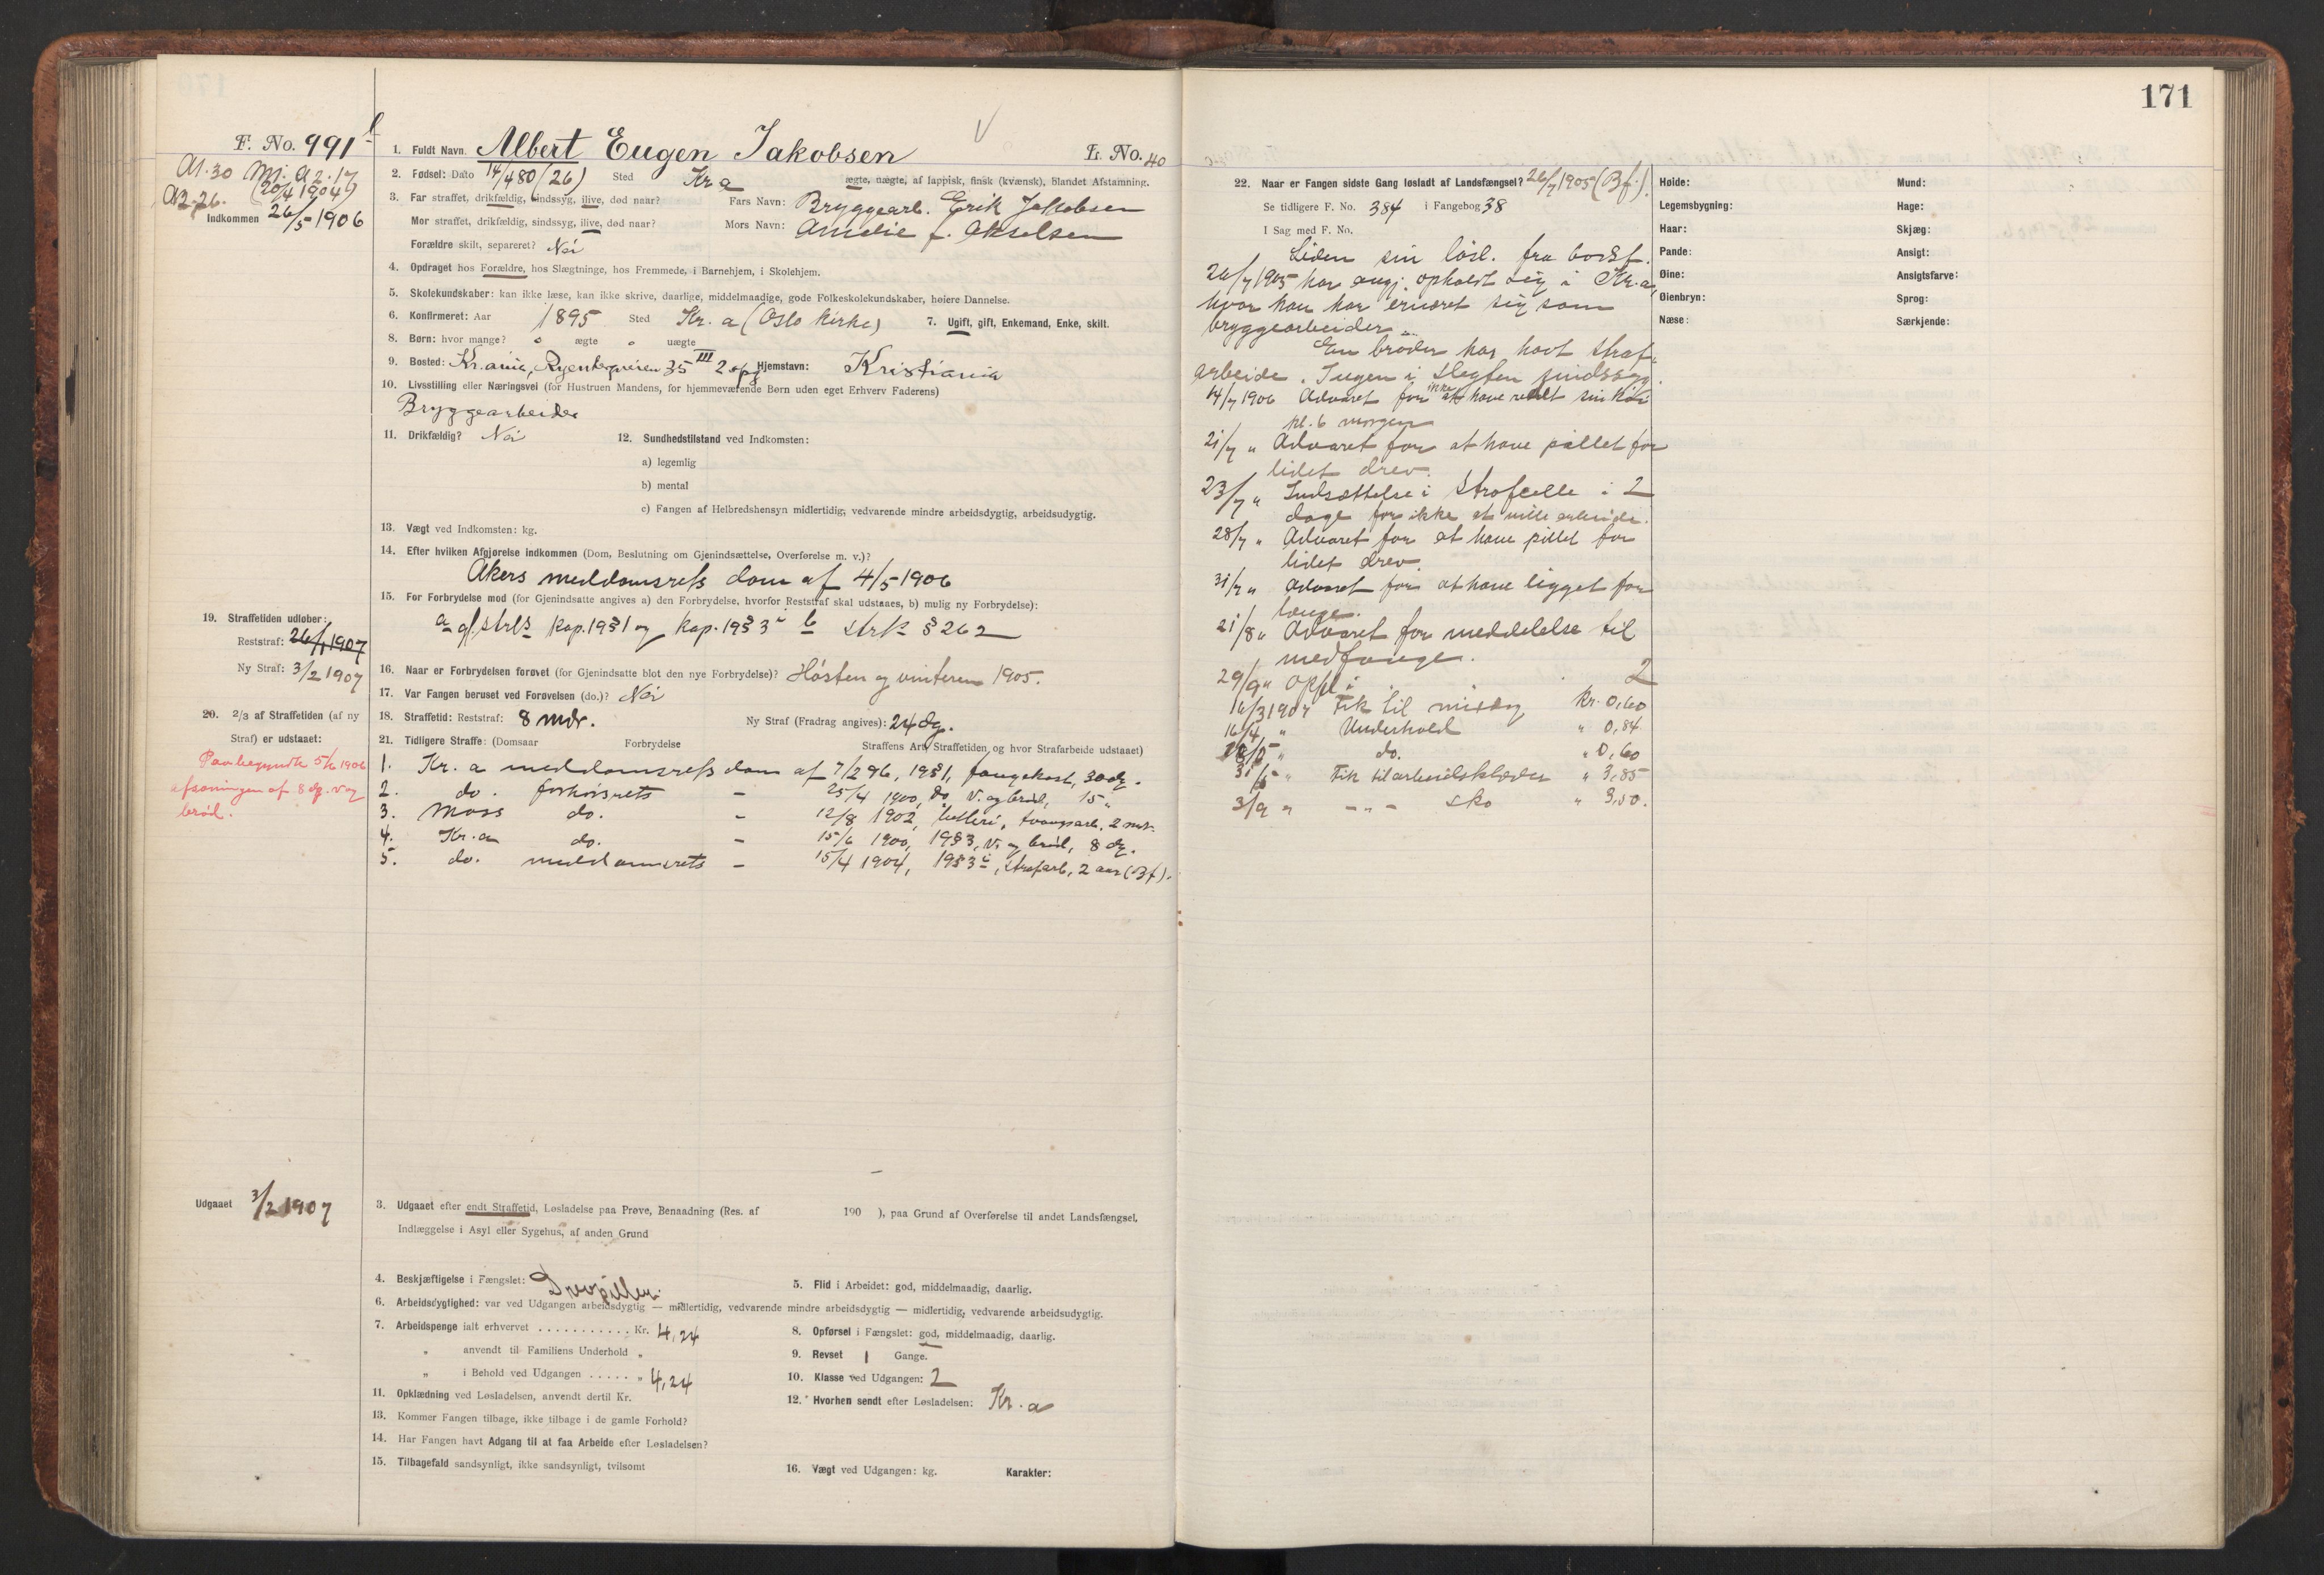 171
F. No. 991
A1.30 Mj. A2.17
A2.26. (20/4 1904)
Indkommen 26/5 1906
1. Fuldt Navn Albert Eugen Jakobsen L. No. 40
2. Fødsel: Dato 14/4 80 (26) Sted Kr a ægte, uægte, af lappisk, finsk (kvænsk), blandet Afstamning.
3. Far straffet, drikfældig, sindssyg, ilive, død naar? Fars Navn: Bryggearb. Erik Jakobsen
Mor straffet, drikfældig, sindssyg, ilive, død naar? Mors Navn: Amelie f. Akselsen
Forældre skilt, separeret? Nei
4. Opdraget hos Forældre, hos Slægtninge, hos Fremmede, i Barnehjem, i Skolehjem.
5. Skolekundskaber: kan ikke læse, kan ikke skrive, daarlige, middelmaadige, gode Folkeskolekundskaber, høiere Dannelse.
6. Konfirmeret: Aar 1895 Sted Kr. a (Oslo kirke) 7. Ugift, gift, Enkemand, Enke, skilt.
8. Børn: hvor mange? o ægte o uægte
9. Bosted: Kr.ania, 35 III 2 opg Hjemstavn: Kristiania
10. Livsstilling eller Næringsvei (for Hustruen Mandens, for hjemmeværende Børn uden eget Erhverv Faderens)
Bryggearbeider
11. Drikfældig? Nei 12. Sundhedstilstand ved Indkomsten:
a) legemlig
b) mental
c) Fangen af Helbredshensyn midlertidig, vedvarende mindre arbeidsdygtig, arbeidsudygtig.
13. Vægt ved Indkomsten: kg.
14. Efter hvilken Afgjørelse indkommen (Dom, Beslutning om Gjenindsættelse, Overførelse m. v.)?
Akers meddomsrets dom af 4/5 1906
15. For Forbrydelse mod (for Gjenindsatte angives a) den Forbrydelse, hvorfor Reststraf skal udstaaes, b) mulig ny Forbrydelse):
a gl. strls kap. 19 § 1 og kap. 19 § 3 b strl § 262
19. Straffetiden udløber:
Reststraf: 26/1 1907
Ny Straf: 3/2 1907
16. Naar er Forbrydelsen forøvet (for Gjenindsatte blot den nye Forbrydelse)? Høsten og vinteren 1905.
17. Var Fangen beruset ved Forøvelsen (do.)? Nei
20. 2/3 af Straffetiden (af ny
Straf) er udstaaet:
Paabegyndte 5/6 1906
afsoningen af 8 dg. v og
brød.
18. Straffetid: Reststraf: 8 mdr. Ny Straf (Fradrag angives): 24 dg.
21. Tidligere Straffe: (Domsaar Forbrydelse Straffens Art, Straffetiden og hvor Strafarbeide udstaaet)
1. Kr. a meddomsrets dom af 7/2 96, 19 § 1, fangekost, 30 dg.
2. do. forhørsrets – 25/4 1900, do, v. og brød, 15 "
3. Moss do. – 12/8 1902, betleri, tvangsarb. 2 mdr.
4. Kr. a do. – 15/6 1900, 19 § 3, v. og brød, 8 dg.
5. do. meddomsrets – 15/4 1904, 19 § 3, strafarb, 2 aar (Bf).
Udgaaet 3/2 1907
3. Udgaaet efter endt Straffetid, Løsladelse paa Prøve, Benaadning (Res. af 190 ), paa Grund af Overførelse til andet Landsfængsel,
Indlæggelse i Asyl eller Sygehus, af anden Grund
4. Beskjæftigelse i Fængslet: Drevpiller. 5. Flid i Arbeidet: god, middelmaadig, daarlig.
6. Arbeidsdygtighed: var ved Udgangen arbeidsdygtig — midlertidig, vedvarende mindre arbeidsdygtig — midlertidig, vedvarende arbeidsudygtig.
7. Arbeidspenge ialt erhvervet . . . . . . . . . . . Kr. 4,24 8. Opførsel i Fængslet: god, middelmaadig, daarlig.
" anvendt til Familiens Underhold " 9. Revset 1 Gange.
" i Behold ved Udgangen . . . . . " 4,24 10. Klasse ved Udgangen: 2
11. Opklædning ved Løsladelsen, anvendt dertil Kr. 12. Hvorhen sendt efter Løsladelsen: Kr. a
13. Kommer Fangen tilbage, ikke tilbage i de gamle Forhold?
14. Har Fangen havt Adgang til at faa Arbeide efter Løsladelsen?
15. Tilbagefald sandsynligt, ikke sandsynligt, tvilsomt 16. Vægt ved Udgangen: kg. Karakter:
22. Naar er Fangen sidste Gang løsladt af Landsfængsel? 26/7 1905 (Bf.).
Se tidligere F. No. 384 i Fangebog 38
I Sag med F. No.
Siden sin løsl. fra bodsf.
26/7 1905 har angj. opholdt sig i Kr. a,
hvor han har ernæret sig som
bryggearbeider.
En broder har havt straf-
arbeide. Ingen i slegten sindssyg.
14/7 1906 Advaret for ikke at have redet sin køi
kl. 6 morgen
21/7 " Advaret for at have pillet for
lidet drev.
23/7 " Indsættelse i strafcelle i 2
dage for ikke at ville arbeide.
28/7 " Advaret for at have pillet for
lidet drev.
31/7 " Advaret for at have ligget for
længe.
21/8 " Advaret for meddelelse til
medfange.
29/9 " Opfl i 2
16/3 1907 Fik til kr. 0,60
16/4 " Underhold " 0,84
18/5 " do. " 0,60
31/5 " Fik til arbeidsklæder " 3,85
3/9 " – " – sko " 3,50.
Høide:
Legemsbygning:
Haar:
Pande:
Øine:
Øienbryn:
Næse:
Mund:
Hage:
Skjæg:
Ansigt:
Ansigtsfarve:
Sprog:
Særkjende: